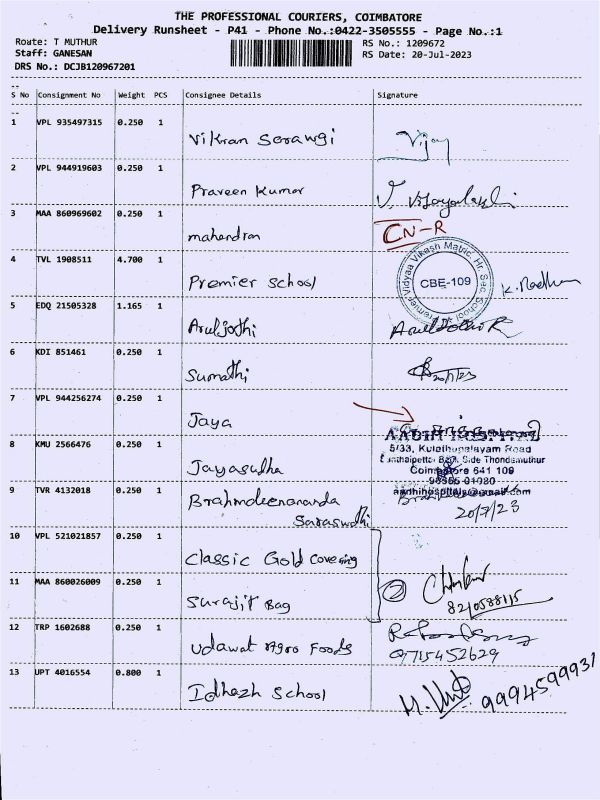 THE PROFESSIONAL COURIERS, COIMBATORE
Delivery Runsheet - P41 - Phone No.:0422-3505555 - Page No.:1
Route: T MUTHUR RS No.: 1209672
Staff: GANESAN RS Date: 20-Jul-2023
DRS No.: DCJB120967201
S No Consignment No Weight PCS Consignee Details Signature
1 VPL 935497315 0.250 1
Vikran Serawgi Vijay
2 VPL 944919603 0.250 1
Praveen Kumar
3 MAA 860969602 0.250 1 CN-R
mahendran
4 TVL 1908511 4.700 1
Premier School
Premier Vidyaa Vikash Matric. Hr. Sec. School
CBE-109
5 EDQ 21505328 1.165 1
Aruljothi
6 KDI 851461 0.250 1
Sumathi 20/7/23
7 VPL 944256274 0.250 1
Jaya
8 KMU 2566476 0.250 1
Jayasudha
5/33, Kulathupalayam Road
Side Thondamuthur
Coimbatore 641 109
9 TVR 4132018 0.250 1
Brahmdeenananda
Saraswathi
20/7/23
10 VPL 521021857 0.250 1
Classic Gold Covering
11 MAA 860026009 0.250 1
Surajit Bag 2
8210588115
12 TRP 1602688 0.250 1
Udawat Agro Foods
9715452629
13 UPT 4016554 0.800 1
Idhazh School 9994599931